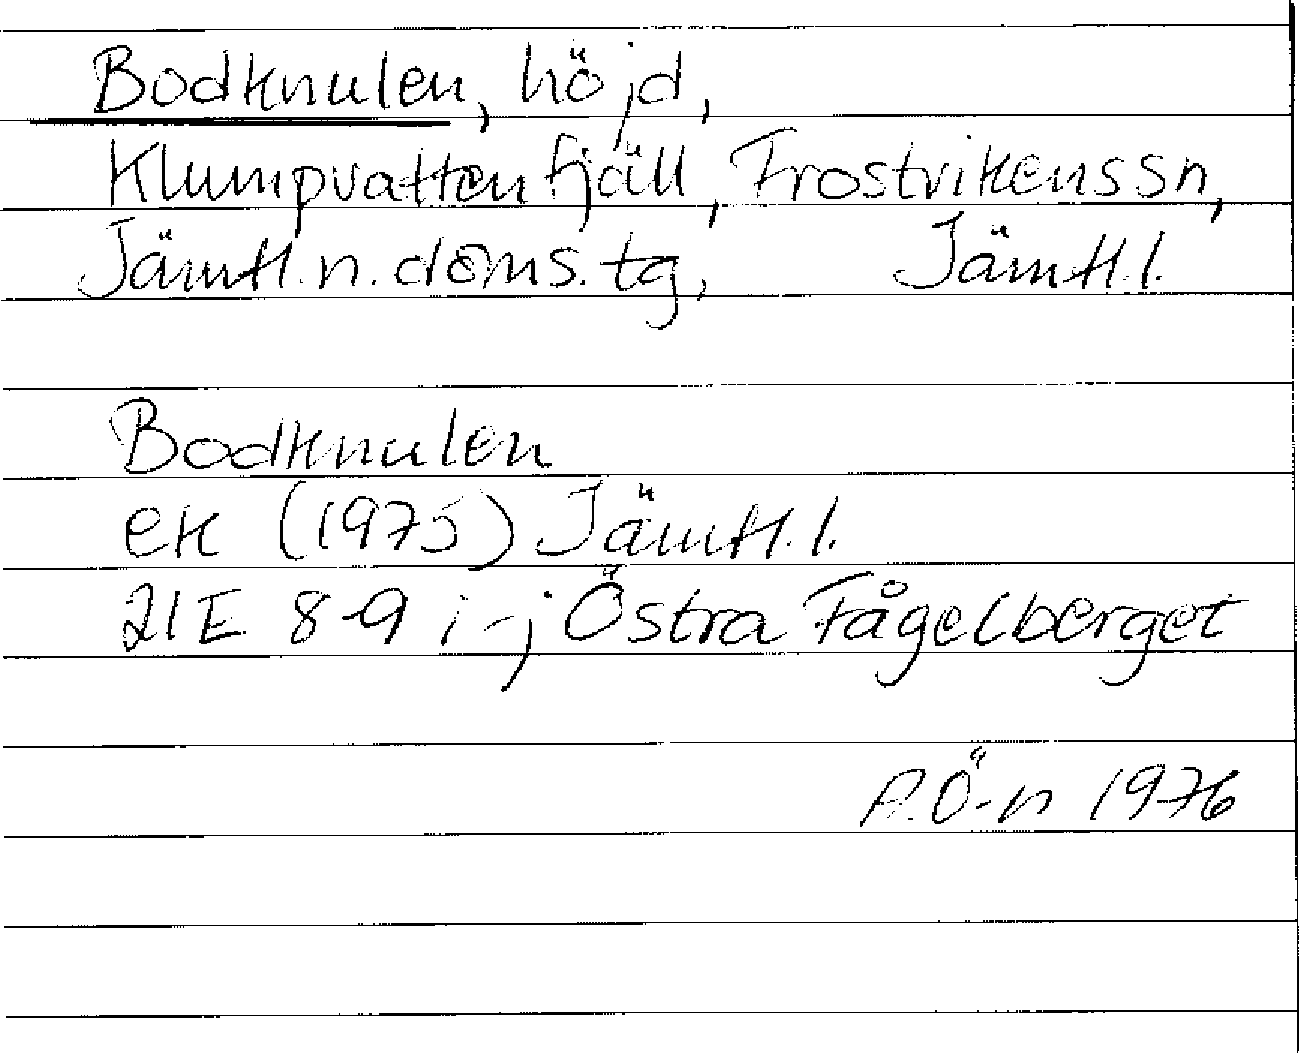 Bodknulen, höjd,
Klumpvattenfjäll, Frostvikens sn,
Jämtl. n. doms. tg, Jämtl. l.
Bodknulen
ek (1975) Jämtl. l.
21E 8-9 i-j Östra Fågelberget
P. Ö-n 1976